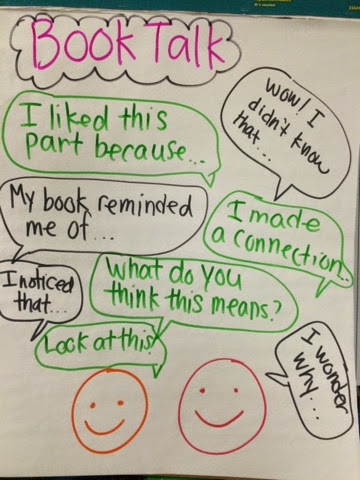 Book Talk
I liked this
part because...
Wow! I
didn't know
that...
My book reminded
me of...
I made
a connection...
I noticed
that...
What do you
think this means?
Look at this!
I wonder
why...